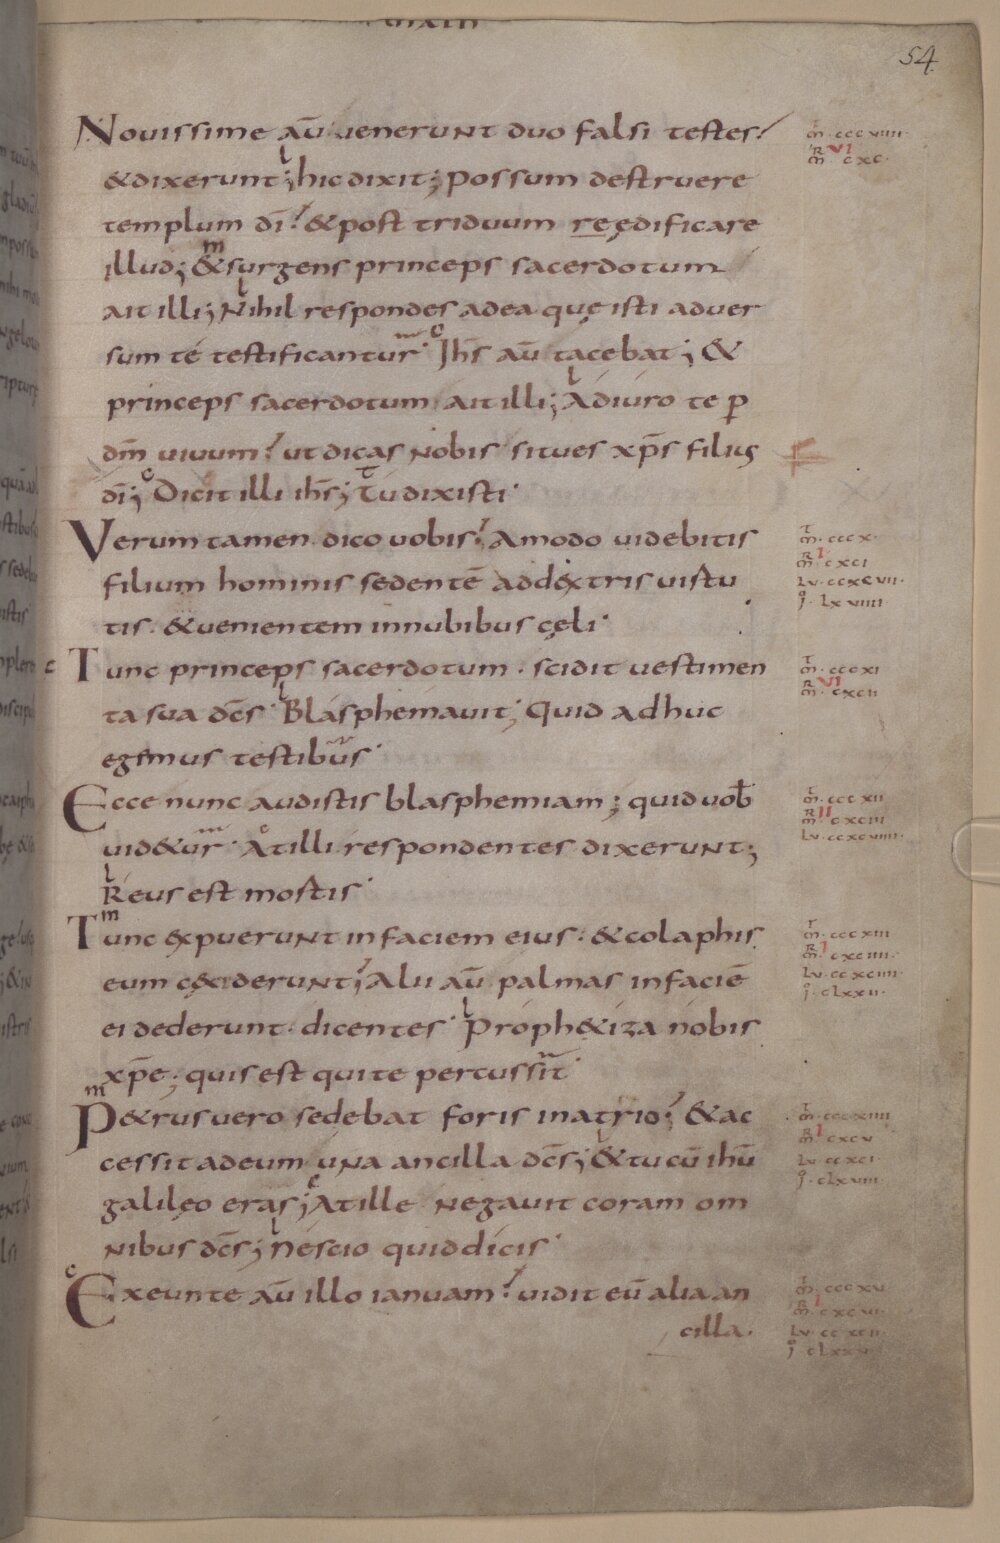 54
Novissime aū venerunt duo falsi testes
& dixerunt; hic dixit; possum destruere
templum dī & post triduum reędificare
illud; & surgens princeps sacerdotum
ait illi; Nihil respondes ad ea quę isti adver
sum te testificantur. Ihs̄ aū tacebat; &
princeps sacerdotum ait illi; Adiuro te p̄
dm̄ vivum ut dicas nobis si tu es xp̄s filius
dī; Dicit illi ihs̄; Tu dixisti.
Verum tamen dico vobis. Amodo videbitis
filium hominis sedentē ad dextris virtu
tis. & venientem in nubibus cęli.
Tunc princeps sacerdotum. scidit vestimen
ta sua dc̄s. Blasphemavit; Quid adhuc
egemus testibus.
Ecce nunc audistis blasphemiam; quid vob̄
vid&ur. At illi respondentes dixerunt;
Reus est mortis.
Tunc expuerunt in faciem eius. & colaphis
eum cęciderunt; Alii aū palmas in faciē
ei dederunt. dicentes. Proph&iza nobis
xp̄e; quis est qui te percussit.
P&rus vero sedebat foris in atrio; & ac
cessit ad eum una ancilla dc̄s; & tu cū ihū
galileo eras; At ille negavit coram om
nibus dc̄s; Nescio quid dicis.
Exeunte aū illo ianuam. vidit eū alia an
cilla.
m̄ . cccviiii.
VI
m̄ cxc.
m̄ . cccx.
I
m̄ . cxci
Lv. ccxcvii.
i. Lxviiii
m̄ . cccxi
VI
m̄ . cxcii
m̄ . cccxii
II
m̄ . cxciii
Lv. ccxcviiii.
m̄ . cccxiii
I
m̄ . cxciiii.
Lv. ccxciiii.
i. cLxxii.
m̄ . cccxiiii
I
m̄ . cxcv
Lv. ccxci.
i. cLxviii.
m̄ . cccxv
I
m̄ . cxcvi.
Lv. ccxcii.